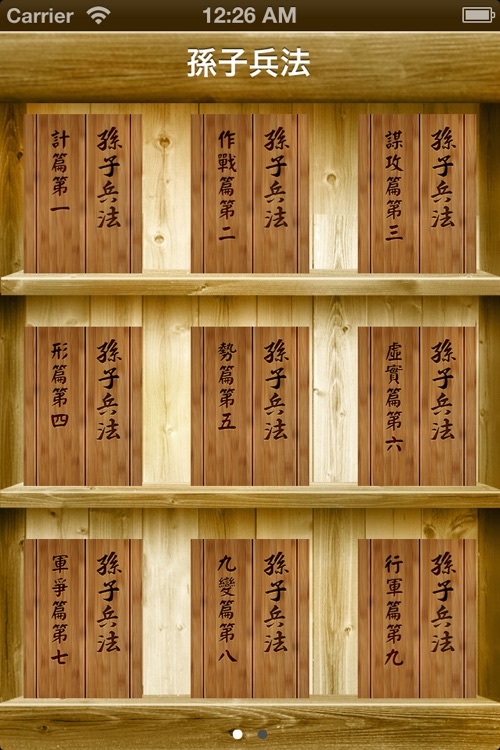 Carrier 12:26 AM
孫子兵法
孫子兵法
計篇第一
孫子兵法
作戰篇第二
孫子兵法
謀攻篇第三
孫子兵法
形篇第四
孫子兵法
勢篇第五
孫子兵法
虛實篇第六
孫子兵法
軍爭篇第七
孫子兵法
九變篇第八
孫子兵法
行軍篇第九